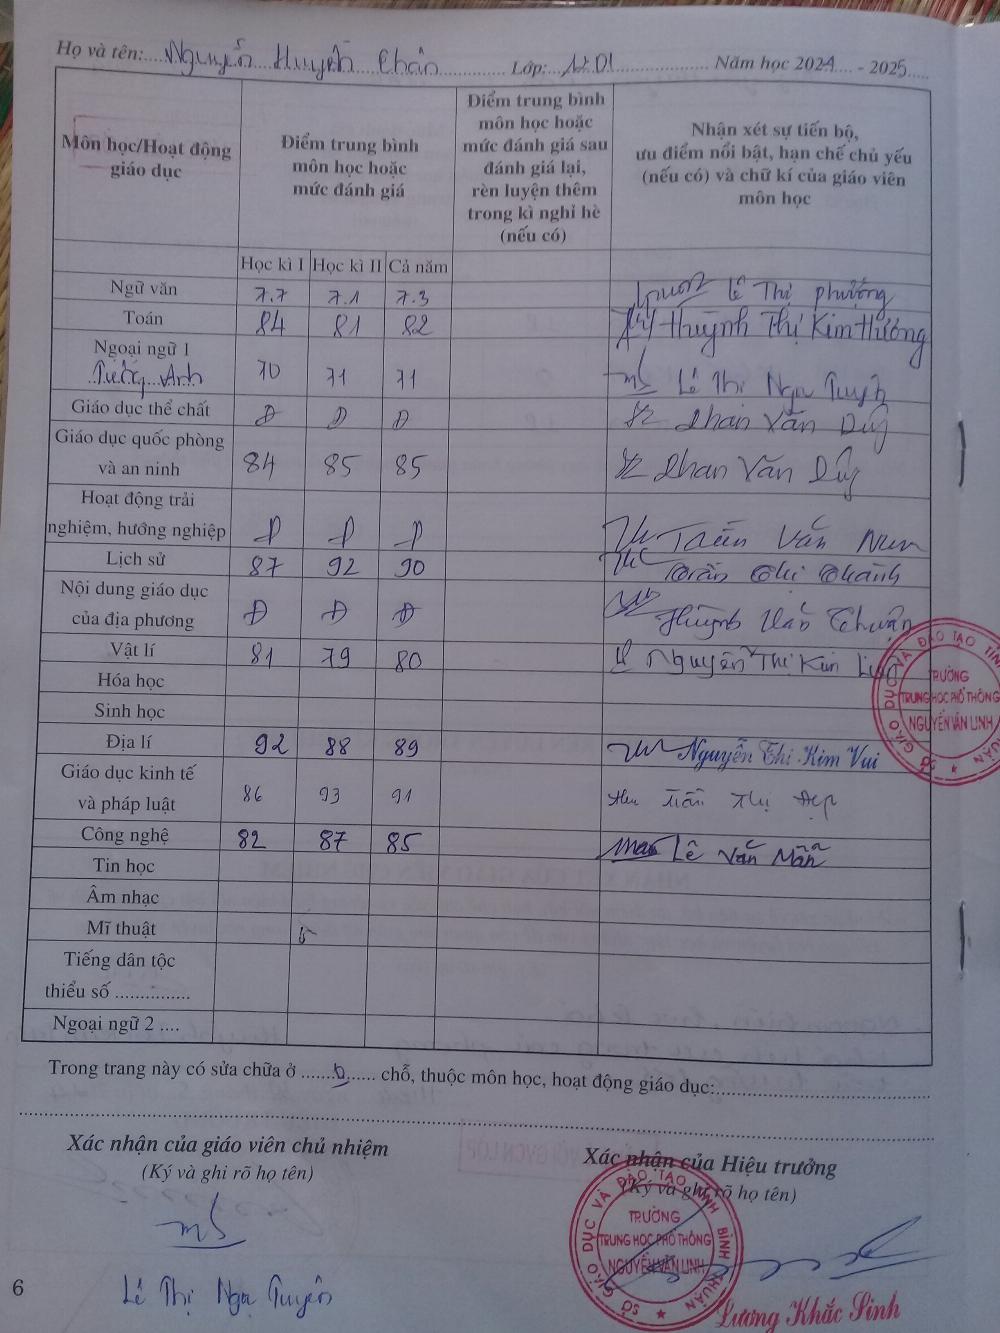 Họ và tên: Nguyễn Huyền Chân Lớp: 12D1 Năm học 2024 - 2025
Môn học/Hoạt động giáo dục
Điểm trung bình môn học hoặc mức đánh giá
Điểm trung bình môn học hoặc mức đánh giá sau đánh giá lại, rèn luyện thêm trong kì nghỉ hè (nếu có)
Nhận xét sự tiến bộ, ưu điểm nổi bật, hạn chế chủ yếu (nếu có) và chữ kí của giáo viên môn học
Học kì I Học kì II Cả năm
Ngữ văn 7.7 7.1 7.3 Lê Thị Phượng
Toán 84 81 82 Huỳnh Thị Kim Hương
Ngoại ngữ 1
Tiếng Anh 70 71 71 Lê Thị Ngự Tuyền
Giáo dục thể chất Đ Đ Đ Phan Văn Dũy
Giáo dục quốc phòng
và an ninh 84 85 85 Phan Văn Dũy
Hoạt động trải
nghiệm, hướng nghiệp Đ Đ Đ Trần Văn
Lịch sử 87 92 90 Trần Thị Khánh
Nội dung giáo dục
của địa phương Đ Đ Đ Huỳnh Văn Thuận
Vật lí 81 79 80 Nguyễn Thị Kim
Hóa học
Sinh học
Địa lí 92 88 89 Nguyễn Thị Kim Vui
Giáo dục kinh tế
và pháp luật 86 93 91 Trần Thị Đẹp
Công nghệ 82 87 85 Lê Văn Mẫn
Tin học
Âm nhạc
Mĩ thuật
Tiếng dân tộc
thiểu số ...............
Ngoại ngữ 2 ....
SỞ GIÁO DỤC VÀ ĐÀO TẠO TỈNH
TRƯỜNG
TRUNG HỌC PHỔ THÔNG
NGUYỄN VĂN LINH
Trong trang này có sửa chữa ở ............ chỗ, thuộc môn học, hoạt động giáo dục:
Xác nhận của giáo viên chủ nhiệm
(Ký và ghi rõ họ tên)
Lê Thị Ngự Tuyền
Xác nhận của Hiệu trưởng
(Ký và ghi rõ họ tên)
SỞ GIÁO DỤC VÀ ĐÀO TẠO TỈNH BÌNH THUẬN
TRƯỜNG
TRUNG HỌC PHỔ THÔNG
NGUYỄN VĂN LINH
Lương Khắc Sinh
6